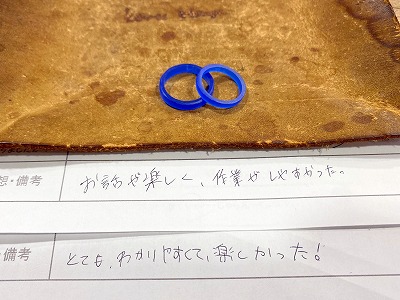 想・備考
お話が楽しく、作業がしやすかった。
備考
とても、わかりやすくて、楽しかった！